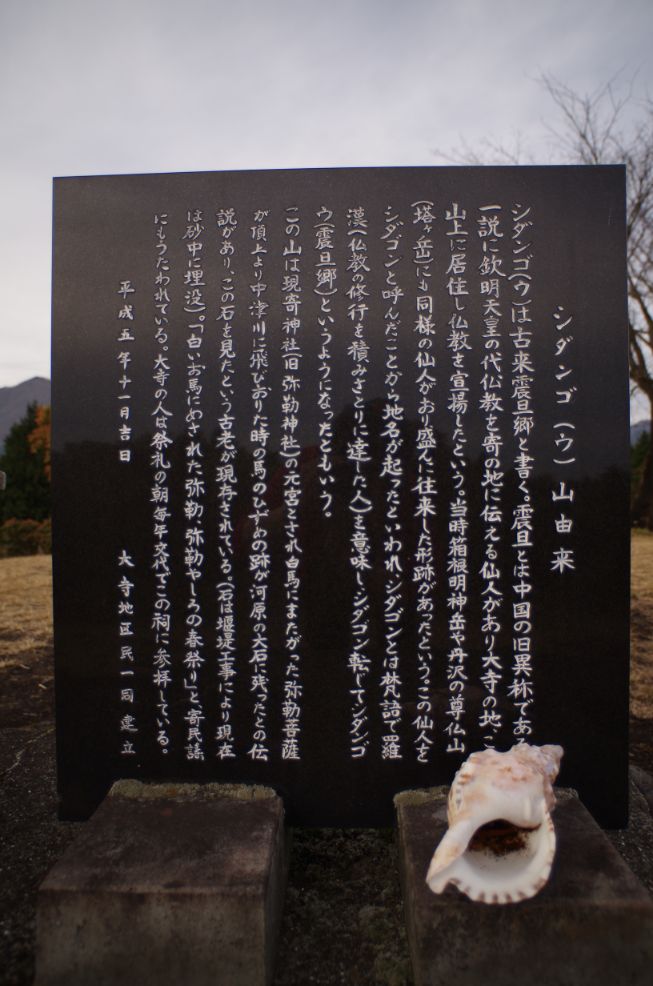 シダンゴ(ウ)山由来
シダンゴ(ウ)は古来震旦郷と書く。震旦とは中国の旧異称であ
一説に欽明天皇の代仏教を寄の地に伝える仙人があり大寺の地、こ
山上に居住し仏教を宣揚したという。当時箱根明神岳や丹沢の尊仏山
(塔ヶ岳)にも同様の仙人がおり盛んに往来した形跡があったという。この仙人を
シダゴンと呼んだことから地名が起ったといわれ、シダゴンとは梵語で羅
漢(仏教の修行を積みさとりに達した人)を意味し、シダゴン転じてシダンゴ
ウ(震旦郷)というようになったともいう。
この山は現寄神社(旧弥勒神社)の元宮とされ白馬にまたがった弥勒菩薩
が頂上より中津川に飛びおりた時の馬のひずめの跡が河原の大石に残ったとの伝
説があり、この石を見たという古老が現存されている。(石は堰堤工事により現在
は砂中に埋没)。「白いお馬にめされた弥勒、弥勒やしろの春祭り」と、寄民謡
にもうたわれている。大寺の人は祭礼の朝毎年交代でこの祠に参拝している。
平成五年十一月吉日
大寺地区民一同建立